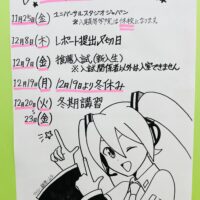 11月25日(金) ユニバーサルスタジオジャパン
12月8日(木) レポート提出〆切日
12月9日(金) 推薦入試(新入生)
※入試関係者以外は入室できません
12月19日(月) 12月19日より冬休み
12月20日(火) 冬期講習
23日(金)